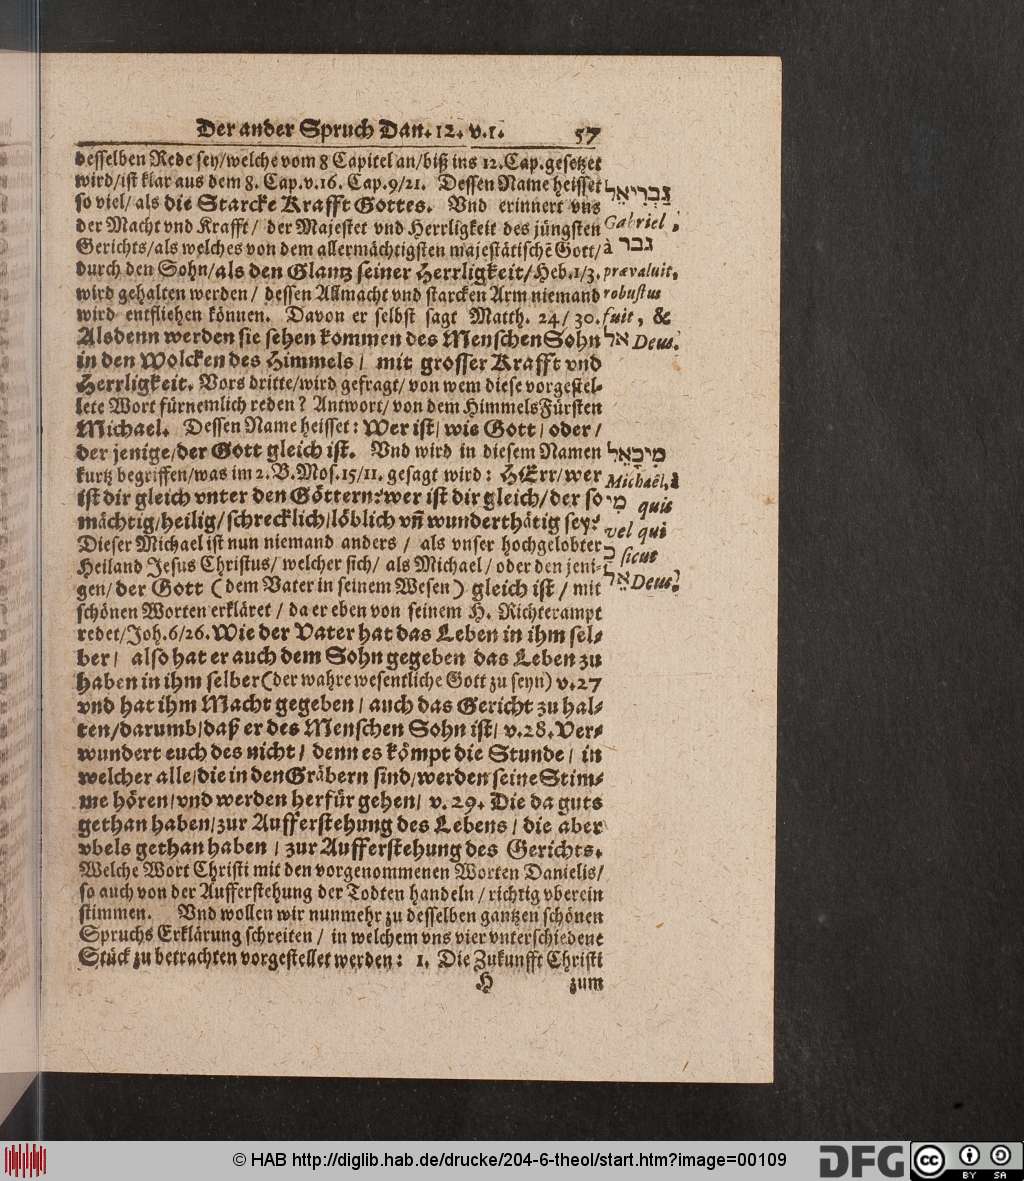 Der ander Spruch Dan. 12. v.1. 57
desselben Rede sey/welche vom 8 Capitel an/biß ins 12. Cap. gesetzet
wird/ist klar aus dem 8. Cap. v. 16. Cap. 9/21. Dessen Name heisset
so viel/als die Starcke Krafft Gottes. Vnd erinnert vns
der Macht vnd Krafft/ der Majestet vnd Herrligkeit des jüngsten
Gerichts/als welches von dem allermächtigsten majestätischē Gott/
durch den Sohn/als den Glantz seiner Herrligkeit/Heb. 1/3.
wird gehalten werden/ dessen Allmacht vnd starcken Arm niemand
wird entfliehen können. Davon er selbst sagt Matth. 24/ 30.
Alsdenn werden sie sehen kommen des MenschenSohn
in den Wolcken des Himmels/ mit grosser Krafft vnd
Herrligkeit. Vors dritte/wird gefragt/von wem diese vorgestel-
lete Wort fürnemlich reden? Antwort/von dem HimmelsFürsten
Michael. Dessen Name heisset: Wer ist/ wie Gott/ oder/
der jenige/der Gott gleich ist. Vnd wird in diesem Namen
kurtz begriffen/was im 2. B. Mos. 15/11. gesagt wird: HErr/wer
ist dir gleich vnter den Göttern? wer ist dir gleich/der so
mächtig/heilig/schrecklich/löblich vñ wunderthätig sey?
Dieser Michael ist nun niemand anders/ als vnser hochgelobter
Heiland Jesus Christus/welcher sich/ als Michael/oder den jeni-
gen/der Gott (dem Vater in seinem Wesen) gleich ist/ mit
schönen Worten erkläret/ da er eben von seinem H. Richterampt
redet/Joh. 6/26. Wie der Vater hat das Leben in ihm sel-
ber/ also hat er auch dem Sohn gegeben das Leben zu
haben in ihm selber (der wahre wesentliche Gott zu seyn) v. 27
vnd hat ihm Macht gegeben/ auch das Gericht zu hal-
ten/darumb/daß er des Menschen Sohn ist/ v. 28. Ver-
wundert euch des nicht/ denn es kömpt die Stunde/ in
welcher alle/die in den Gräbern sind/werden seine Stim-
me hören/vnd werden herfür gehen/ v. 29. Die da guts
gethan haben/zur Aufferstehung des Lebens/ die aber
vbels gethan haben/ zur Aufferstehung des Gerichts.
Welche Wort Christi mit den vorgenommenen Worten Danielis/
so auch von der Aufferstehung der Todten handeln/richtig vberein
stimmen. Vnd wollen wir nunmehr zu desselben gantzen schönen
Spruchs Erklärung schreiten/ in welchem vns vier vnterschiedene
Stück zu betrachten vorgestellet werden: 1. Die Zukunfft Christi
H zum
גַּבְרִיאֵל
Gabriel,
à גבר
prævaluit,
robustus
fuit, &
אל Deus.
מִיכָאֵל
Michaël, à
מִי quis
vel qui
כ sicut
אֵל Deus.
© HAB http://diglib.hab.de/drucke/204-6-theol/start.htm?image=00109
DFG
cc BY SA